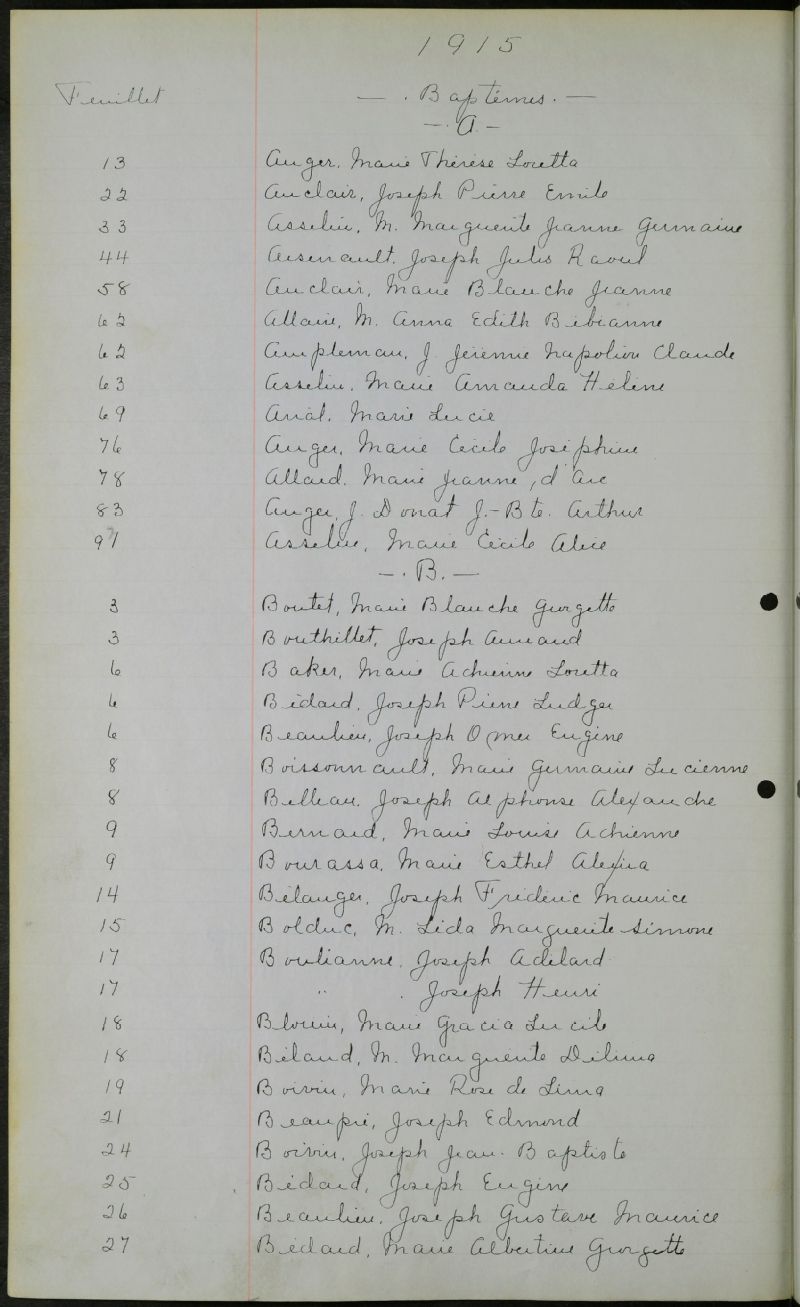 1915
Feuillet — . Baptêmes. —
— . A . —
13 Auger, Marie Thérèse Loretta
22 Auclair, Joseph Pierre Emile
33 Asselin, M. Marguerite Jeanne Germaine
44 Arsenault, Joseph Jules Raoul
58 Auclair, Marie Blanche Jeanne
62 Allaire, M. Anna Edith Bibianne
62 Ampleman, J. Jérémie Napoléon Claude
63 Asselin, Marie Amanda Hélène
69 Marie Lucie
76 Auger, Marie Cécile Joséphine
78 Allard, Marie Jeanne d'Arc
83 Auger, J. Donat J.-Bte. Arthur
91 Asselin, Marie Cécile Alice
— . B. —
3 Boutet, Marie Blanche Georgette
3 Bouthillet, Joseph Armand
6 Baker, Marie Adrienne Loretta
6 Bédard, Joseph Pierre Ludger
6 Beaulieu, Joseph Omer Eugène
8 Boissonnault, Marie Germaine Lucienne
8 Belleau, Joseph Alphonse Alexandre
9 Bernard, Marie Louise Adrienne
9 Bourassa, Marie Esthel Alexina
14 Bélanger, Joseph Frédéric Maurice
15 Bolduc, M. Lida Marguerite Simone
17 Boulianne, Joseph Adélard
17 " . Joseph Henri
18 Blouin, Marie Gracia Lucile
18 Béland, M. Marguerite Délima
19 Boivin, Marie Rose de Lima
21 Beaupré, Joseph Edmond
24 Boivin, Joseph Jean-Baptiste
25 Bédard, Joseph Eugène
26 Beaulieu, Joseph Gustave Maurice
27 Bédard, Marie Albertine Georgette